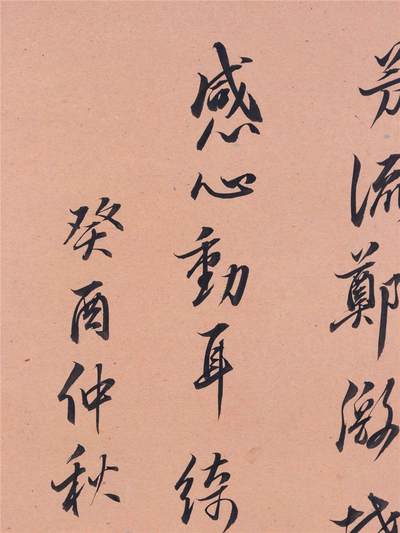 芳流鄭激
感心動耳綺
癸酉仲秋